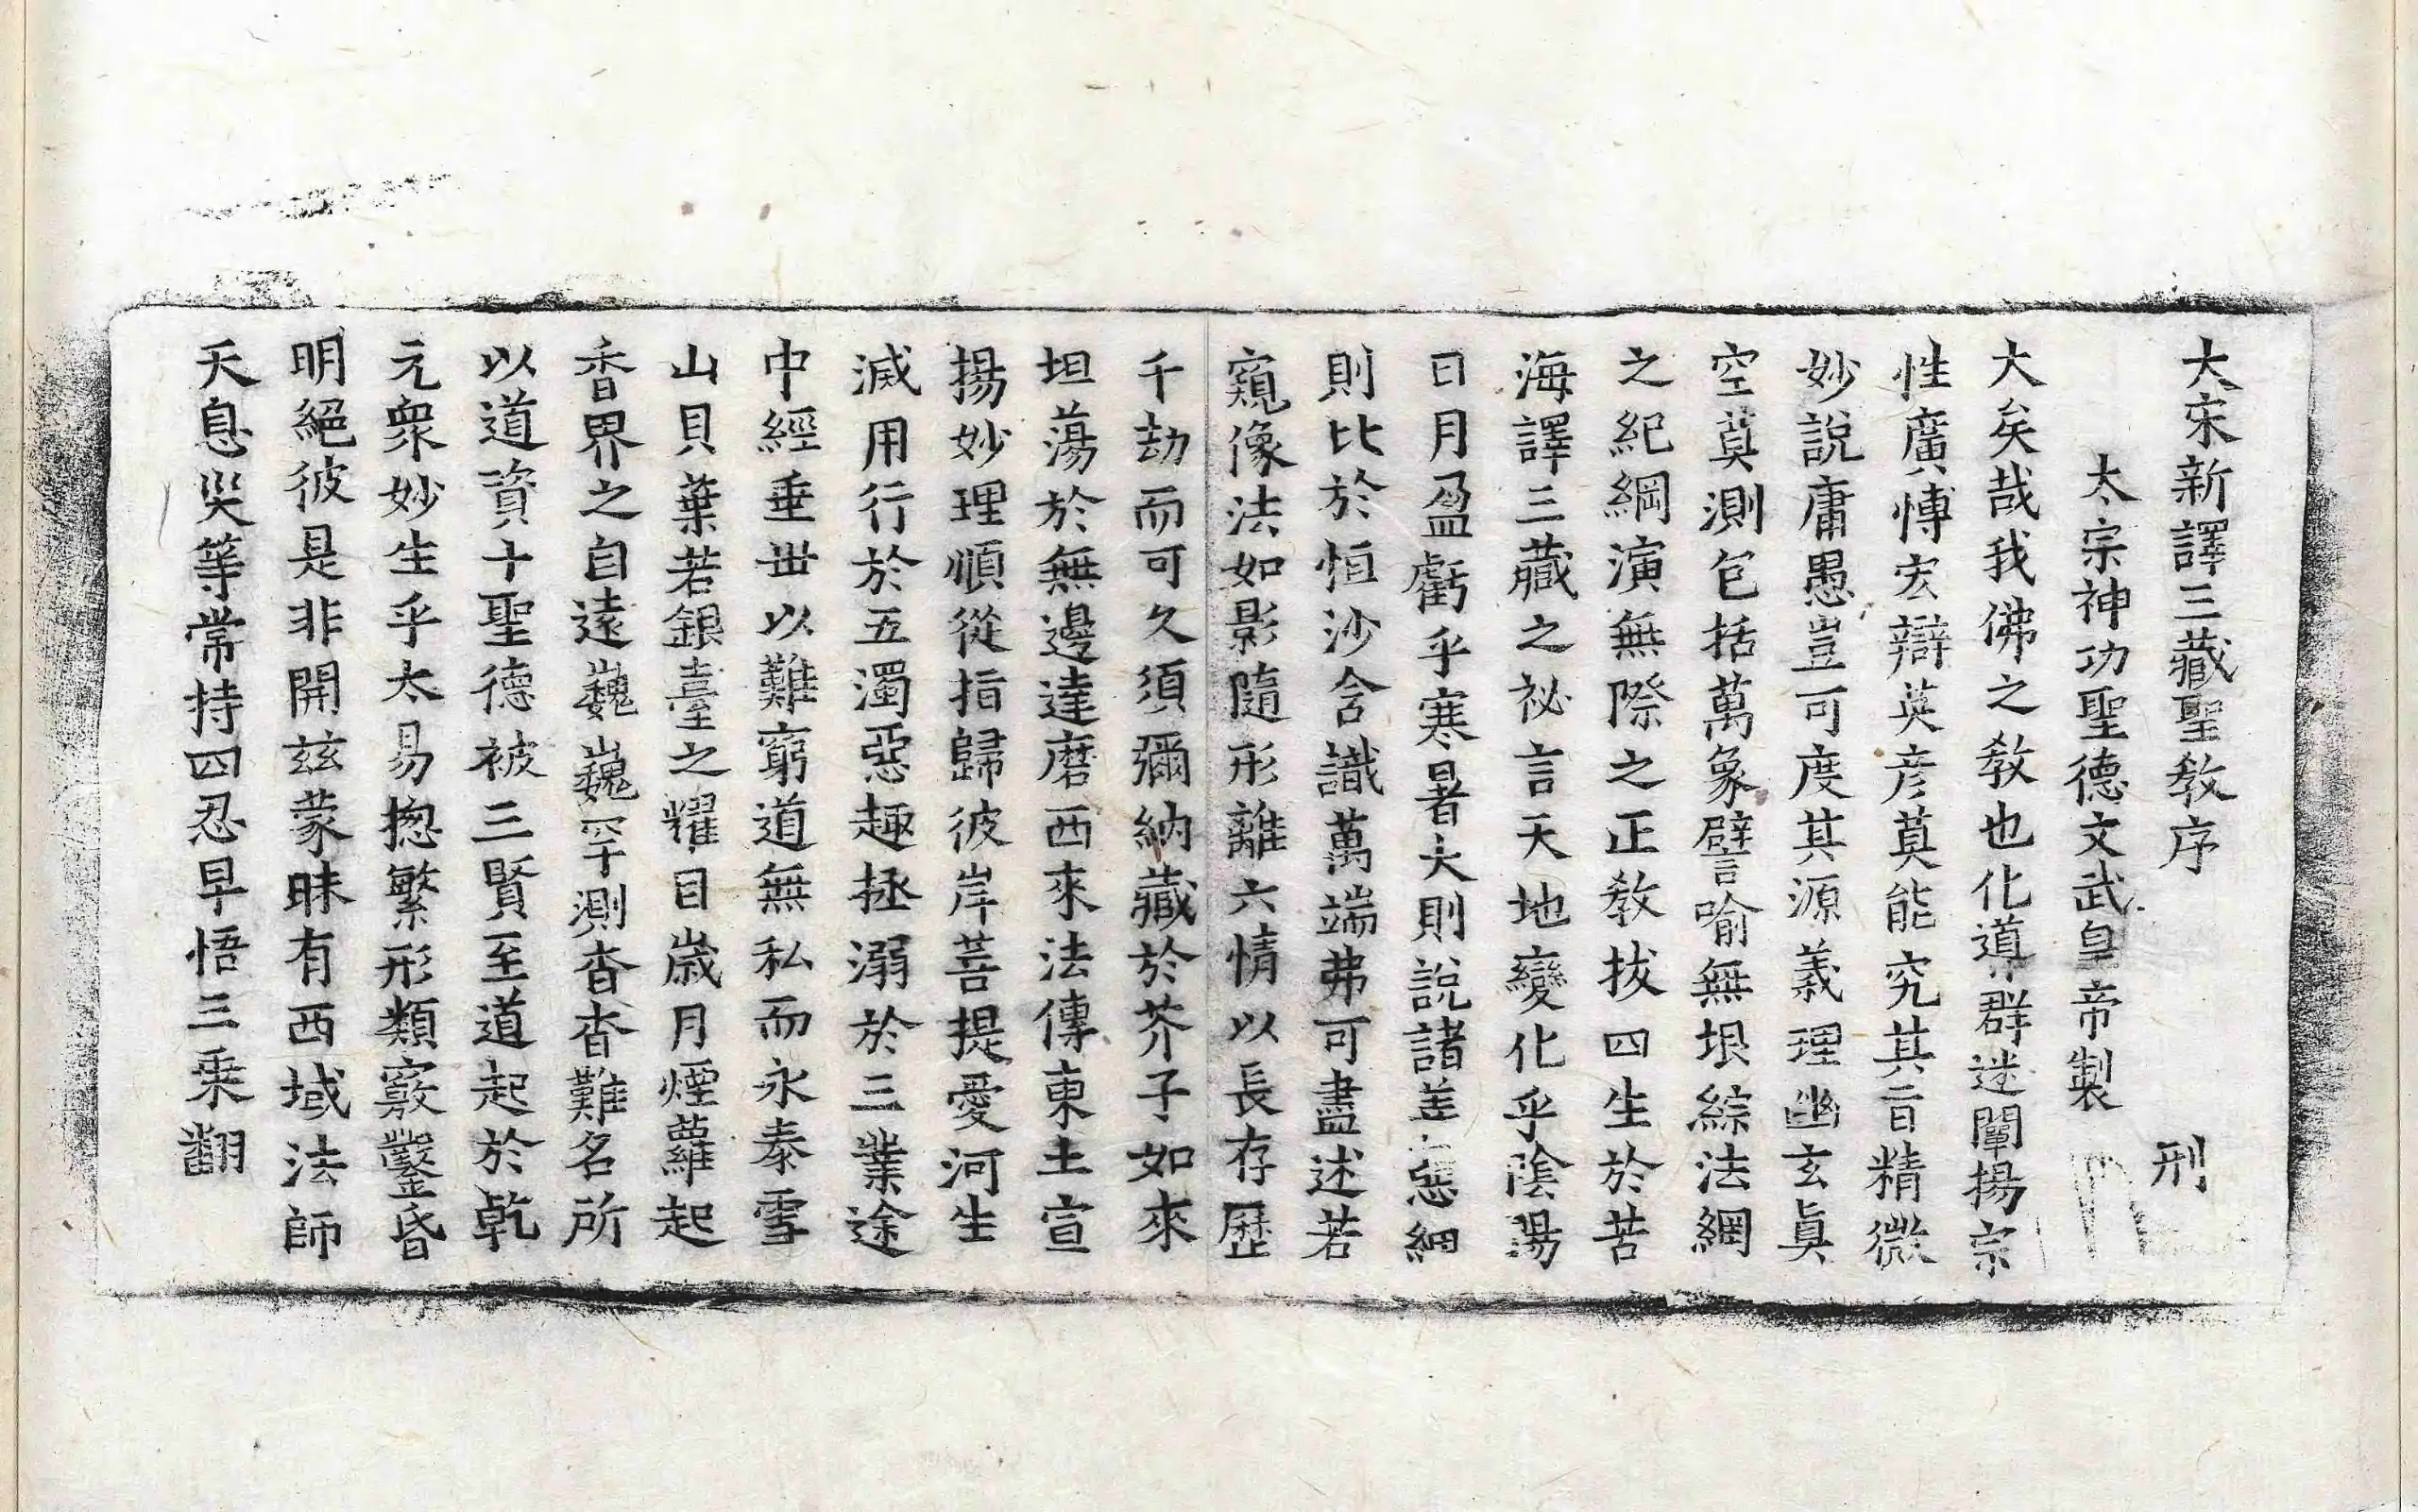 大宋新譯三藏聖敎序 刑
太宗神功聖德文武皇帝製
大矣哉我佛之敎也化導群迷闡揚宗
性廣愽宏辯英彦莫能究其旨精微
妙說庸愚豈可度其源義理幽玄眞
空莫測包括萬象譬喻無垠綜法網
之紀綱演無際之正敎拔四生於苦
海譯三藏之祕言天地變化乎陰陽
日月盈虧乎寒暑大則說諸善惡細
則比於恒沙含識萬端弗可盡述若
窺像法如影隨形離六情以長存歷
千劫而可久須彌納藏於芥子如來
坦蕩於無邊達磨西來法傳東土宣
揚妙理順從指歸彼岸菩提愛河生
滅用行於五濁惡趣拯溺於三業途
中經垂丗以難窮道無私而永泰雪
山貝葉若銀臺之耀目歲月煙蘿起
香界之自遠巍巍罕測杳杳難名所
以道資十聖德被三賢至道起於乾
元衆妙生乎太易揔繁形類竅鑿昏
明絕彼是非開玆蒙昧有西域法師
天息災等常持四忍早悟三乘翻